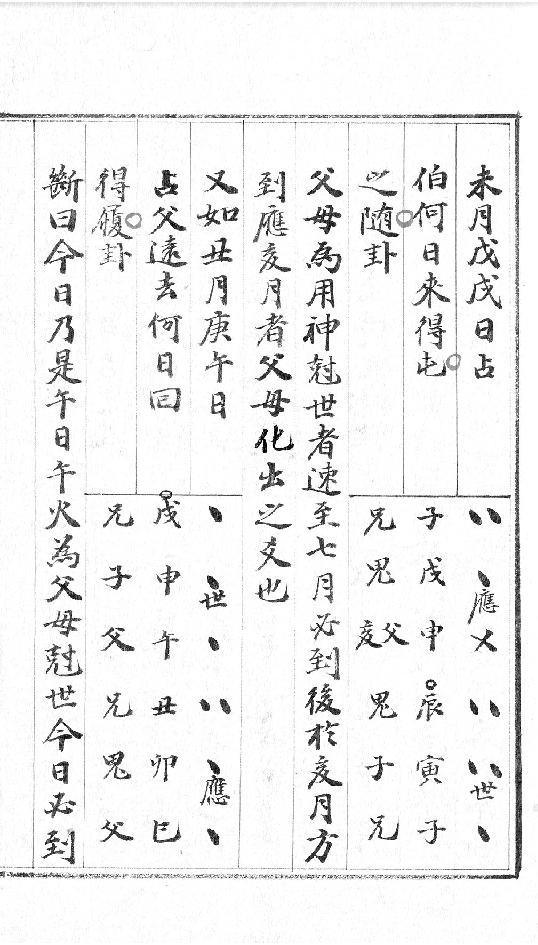 未月戊戌日占
伯何日來得屯
之随卦
丶丶 丶應 㐅 丶丶 丶丶世 丶
子戌申辰寅子
兄鬼父亥鬼子兄
父母為用神尅世者速至七月必到後於亥月方
到應亥月者父母化出之爻也
又如丑月庚午日
占父遠去何日回
得履卦
丶 丶世 丶 丶丶 丶應 丶
戌申午丑卯巳
兄子父兄鬼父
斷曰今日乃是午日午火為父母尅世今日必到